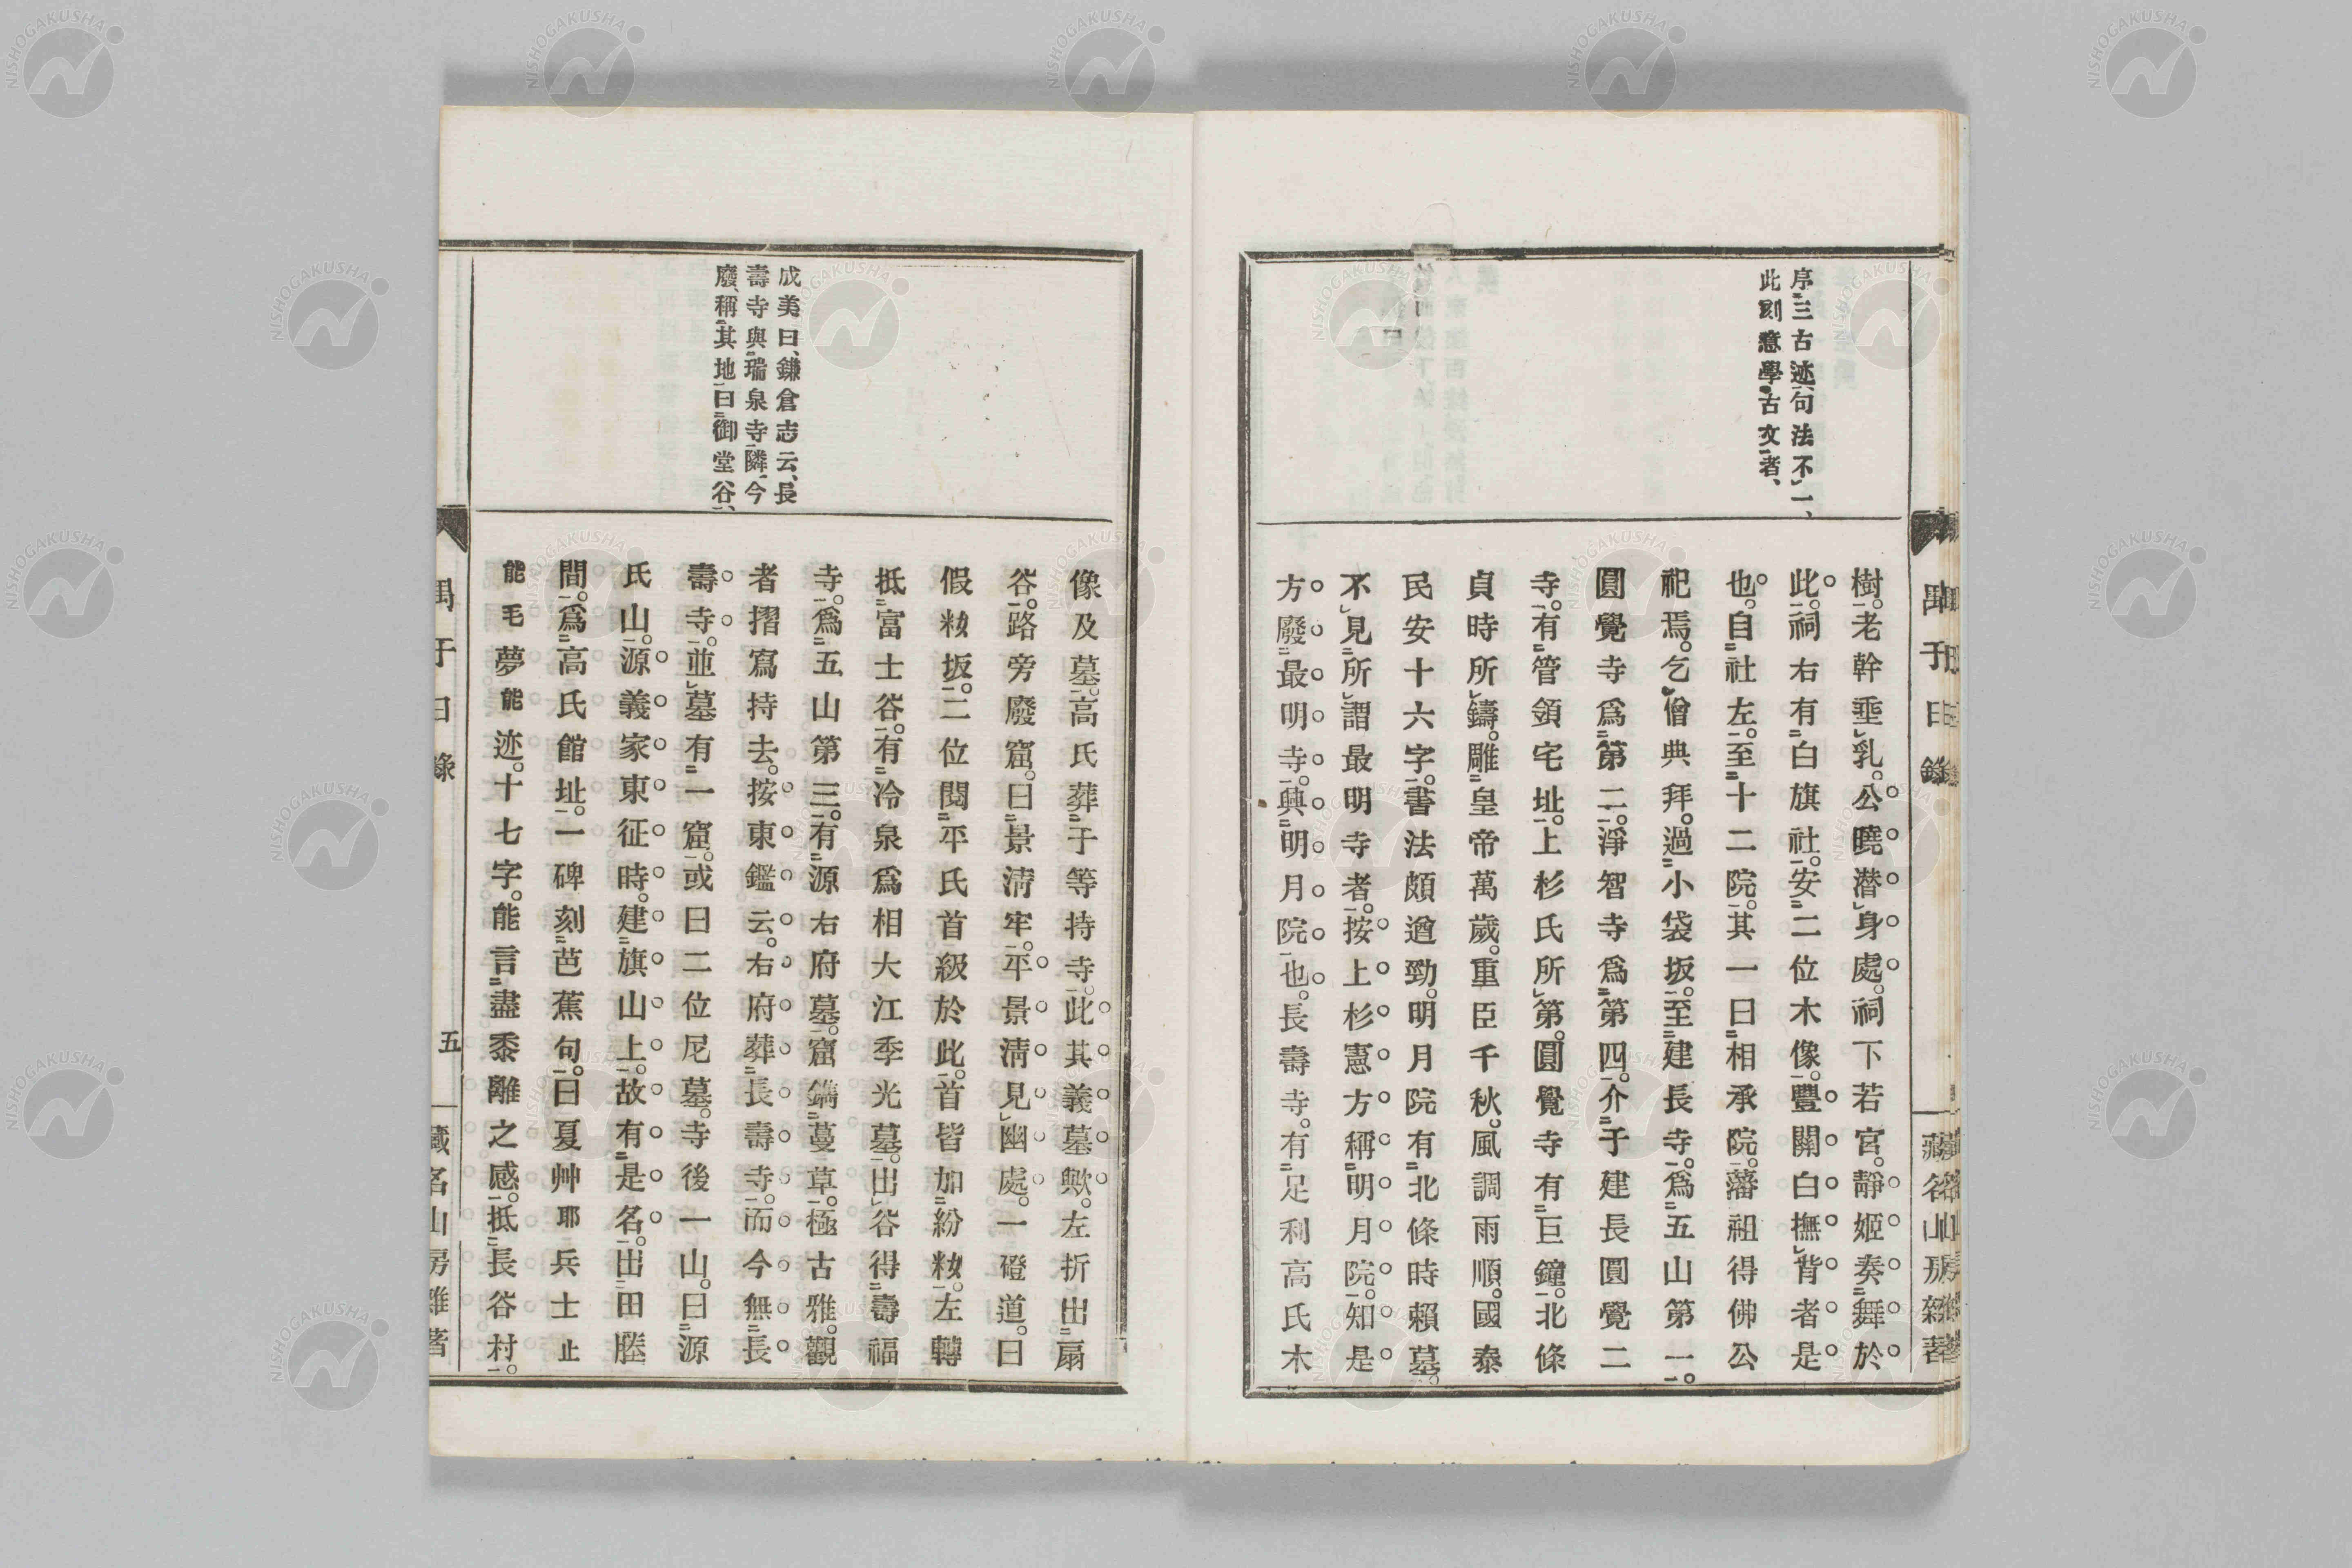 序三古迹句法不一、
此刻意學古文者、
樹。老幹垂乳。公曉潛身處。祠下若宮。靜姬奏舞於
此。祠右有白旗社。安二位木像。豐關白撫背者是
也。自社左。至十二院。其一曰相承院。藩祖得佛公
祀焉。乞僧典拜。過小袋坂。至建長寺。爲五山第一。
圓覺寺爲第二。淨智寺爲第四。介于建長圓覺二
寺。有管領宅址。上杉氏所第。圓覺寺有巨鐘。北條
貞時所鑄。雕皇帝萬歲。重臣千秋。風調雨順。國泰
民安十六字。書法頗遒勁。明月院有北條時賴墓。
不見所謂最明寺者。按上杉憲方稱明月院。知是
方廢最明寺。興明月院也。長壽寺。有足利高氏木
成美曰、鎌倉志云、長
壽寺與瑞泉寺隣、今
廢、稱其地曰御堂谷、
像及墓。高氏葬于等持寺。此其義墓歟。左折出扇
谷。路旁廢窟。曰景淸牢。平景淸見幽處。一磴道。曰
假粧坂。二位閱平氏首級於此。首皆加紛粧。左轉
抵富士谷。有冷泉爲相大江季光墓。出谷得壽福
寺。爲五山第三。有源右府墓。窟鐫蔓草。極古雅。觀
者摺寫持去。按東鑑云。右府葬長壽寺。而今無長
壽寺。並墓有一窟。或曰二位尼墓。寺後一山。曰源
氏山。源義家東征時。建旗山上。故有是名。出田塍
間。爲高氏館址。一碑刻芭蕉句。曰夏艸耶兵士止
能毛夢能迹。十七字。能言盡黍離之感。抵長谷村。
五